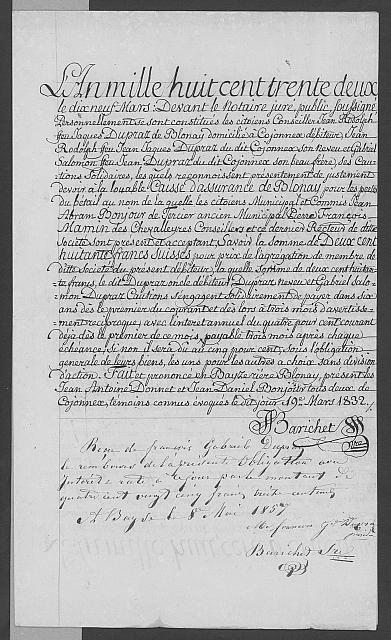 L'An mille huit cent trente deux
le dix neuf Mars: Devant le Notaire juré public soussigné
Personnellement se sont constitués les citoyens Conseiller Jean Rodolph
feu Jaques Dupraz de Blonay domicilié à Cojonnex débiteur, Jean
Rodolph feu Jean Jaques Dupraz du dit Cojonnex son Neveu et Gabriel
Salomon feu Jean Dupraz du dit Cojonnex son beau frère, ses Cau-
tions Solidaires, les quels reconnoissent présentement de justement
devoir à la louable Caisse d'assurance de Blonay pour les pertes
du bétail au nom de la quelle les citoyens Municipal et Commis Jean
Abram Bonjour de Tercier ancien Municipal Pierre François
Mamin des Chevalleyres Conseillers et ce dernier Recteur de dite
Société sont présent et acceptant, Savoir la somme de Deux cent
huitante francs Suisses pour prix de l'agrégation de membre de
dite Société du présent débiteur, la quelle Somme de deux cent huitan-
te francs, le dit Dupraz oncle débiteur Dupraz neveu et Gabriel Salo-
mon Dupraz Cautions s'engagent Solidairement de payer dans six
ans dès le premier du courant et dès lors à trois mois d'avertisse-
ment réciproque, avec l'interet annuel du quatre pour cent courant
déja dès le premier de ce mois, payable trois mois après chaque
échéance, Sinon il sera du au cinq pour cent, Sous l'obligation
générale de leurs biens, les uns pour les autres à choix sans division
d'action. Fait et prononcé en Bayse rière Blonay, présent les
Jean Antoine Donnet et Jean Daniel Bonjour tous deux de
Cojonnex, témoins connus évoqués le dit jour 19e Mars 1832.
Barichet
Reçu de françois Gabriel Dupraz
le rembours de la présente Obligation avec
intérêt à ce jour par le montant de
quatre cent vingt cinq francs trente centimes
A Bayse le 8e Mai 1857
françois
Barichet